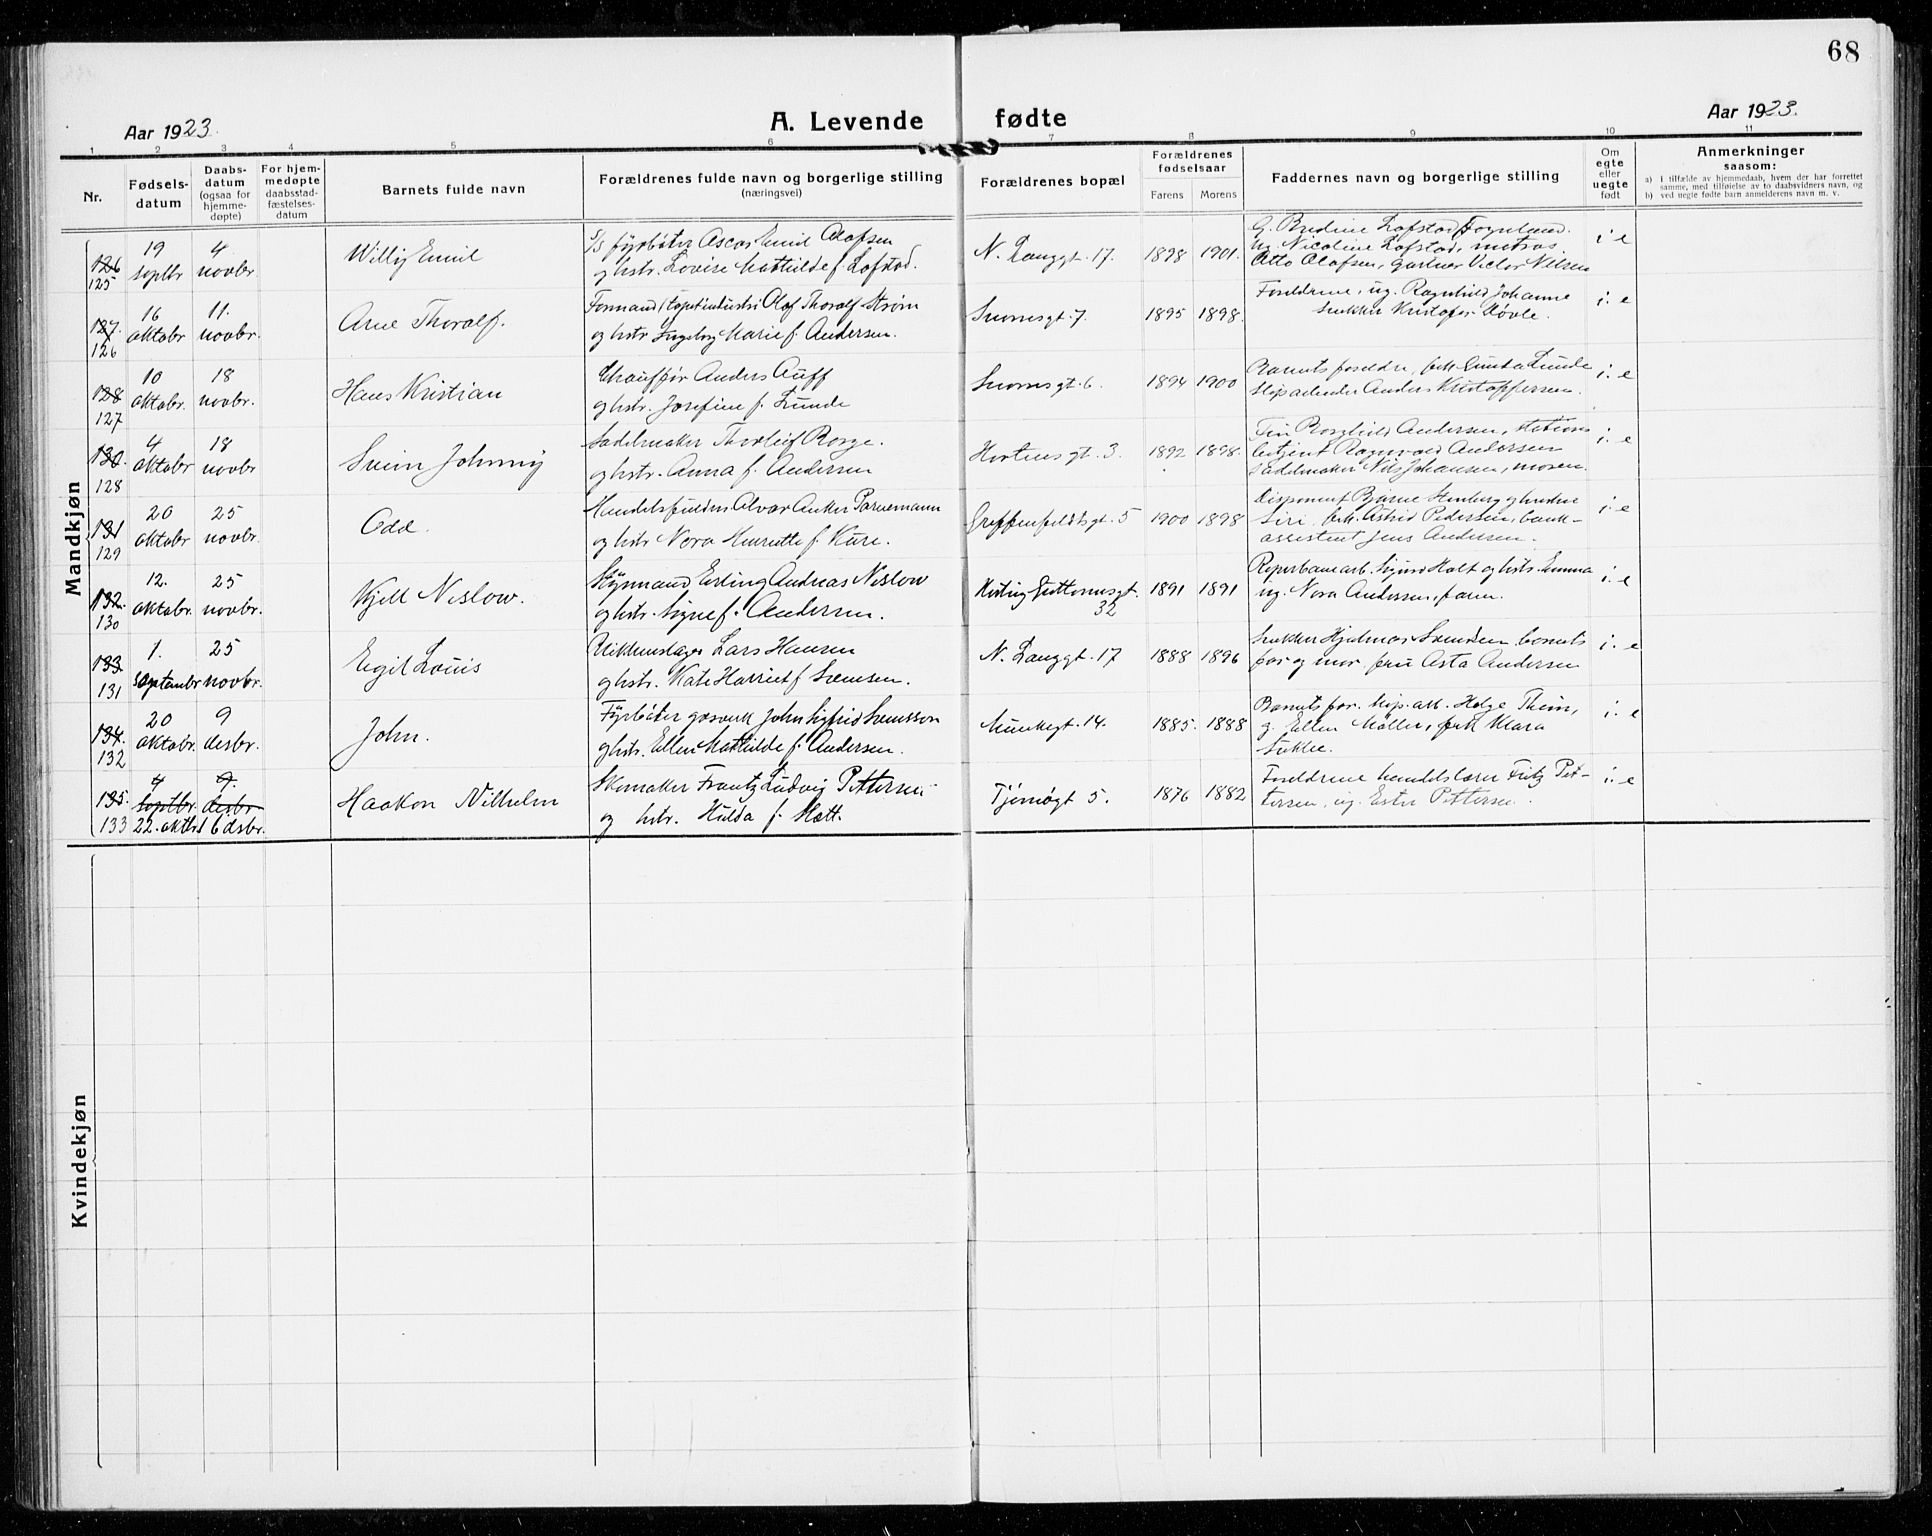 68
Aar 1923.
A. Levende fødte
Aar 1923.
1 2 3 4 5 6 7 8 9 10 11
Nr.
Fødsels-
datum
Daabs-
datum
(ogsaa for
hjemme-
døpte)
For hjem-
medøpte
daabsstad-
fæstelses-
datum
Barnets fulde navn
Forældrenes fulde navn og borgerlige stilling
(næringsvei)
Forældrenes bopæl
Forældrenes
fødselsaar
Farens Morens
Faddernes navn og borgerlige stilling
Om
egte
eller
uegte
født
Anmerkninger
saasom:
a) I tilfælde av hjemmedaab, hvem der har forrettet
samme, med tilføielse av to daabsvidners navn, og
b) ved uegte fødte barn anmelderens navn m. v.
Mandkjøn
126 125 19 septbr 4 novbr
Willy Emil
S/S fyrbøter Oscar Emil Olafsen
og hstr. Lovise Mathilde f. Lofstad.
N. Langgt. 17. 1898 1901.
G. Bredine Lofstad,
ug. Nicoline Lofstad, matros
Otto Olafsen, gartner Victor Nilsen
i. e
127. 126 16 oktobr 11. novbr.
Arne Thoralf.
Formand Olaf Thoralf Strøm
og hstr Ingeborg Marie f. Andersen.
Snorresgt. 7. 1895 1898.
Foreldrene, ug. Ragnhild Johanne
Snekker Kristofer Høvle.
i. e
128 127 10 oktobr. 18 novbr.
Hans Kristian
Chauffør Anders Auff
og hstr. Josefine f. Lunde
Snorresgt. 6. 1894 1900
Barnets foreldre, frk. Lunde
Skipsarbeider Anders Kristoffersen.
i. e
130. 128 4 oktobr 18 novbr
Svein Johnny
Sadelmaker Thorleif Borge.
og hstr. Anna f. Andersen
Hortensgt. 3. 1892 1898.
Fru Ragnhild Andersen, stations-
betjent Ragnvald Andersen
sadelmaker Nils Johansen, moren.
i. e
131 129 20 oktobr 25 novbr.
Odd.
Alvar Anker Parnemann
og hstr Nora Henriette f. Kure.
Griffenfeldtsgt. 5 1900 1898
Disponent Bjarne Stenberg og hustru
Siri, frk. Astrid Pedersen, bank-
assistent Jens Andersen.
i. e
132. 130 12. oktobr 25 novbr.
Kjell Nislow.
Styrmand Erling Andreas Nislow
og hstr. Signe f. Andersen.
Hertug Guttormsgt. 32 1891 1891
Reperbanearb. Sigurd Holt og hstr. Emma
ug. Nora Andersen, faren.
i. e
133 131 1. septembr 25 novbr.
Eigil Louis
Blikkenslager Lars Hansen
og hstr. Kate Harriet f. Svensen.
N. Langgt. 17 1888 1896
Snekker Hjalmar Svendsen barnets
far og mor. fru Asta Andersen
i. e
134. 132 20 oktobr. 9 desbr.
John.
Fyrbøter gasverk John Sigfrid Svensson
og hstr. Ellen Mathilde f. Andersen.
Munkegt. 14. 1885. 1888
Barnets far. skips. arb. Helge Thein,
g. Ellen Møller, frk Klara
i. e
135. 133 4 septbr. 9. desbr 22. oktbr 16 desbr.
Haakon Vilhelm
Skomaker Frantz Ludvig Pettersen
og hstr. Hulda f. Mott.
Tjømøgt 5. 1876 1882
Foreldrene handelslærer Fritz Pet-
tersen, ug. Ester Pettersen.
i. e
Kvindekjøn